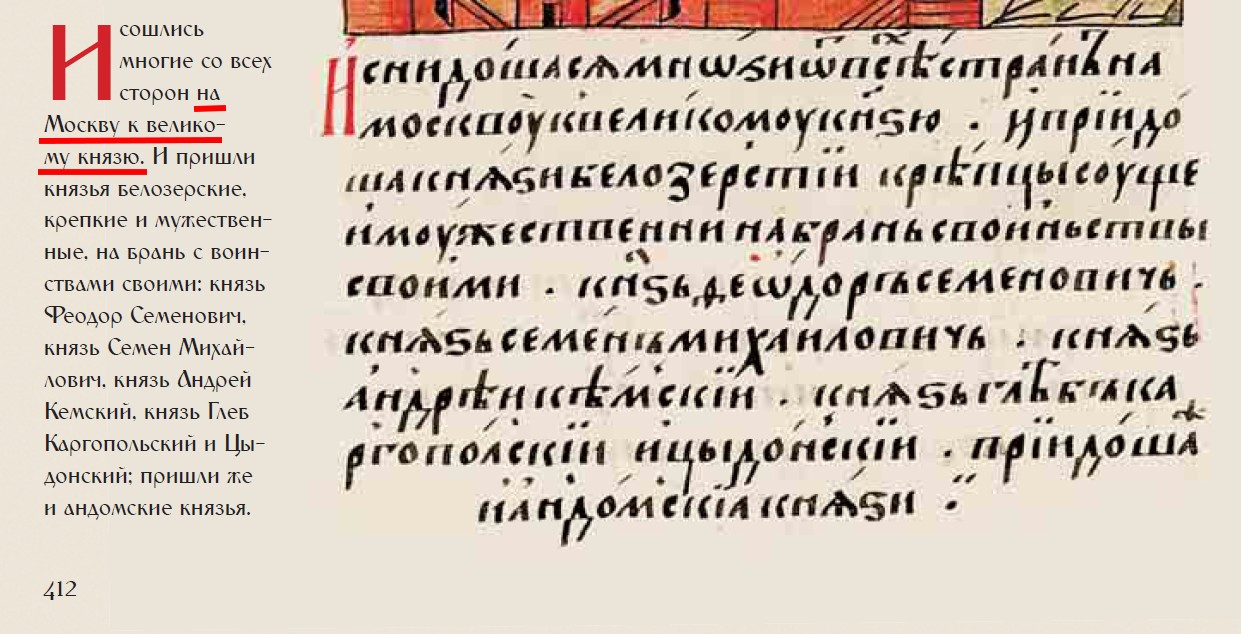 И сошлись
многие со всех
сторон на
Москву к велико-
му князю. И пришли
князья белозерские,
крепкие и мужествен-
ные, на брань с воин-
ствами своими: князь
Феодор Семенович,
князь Семен Михай-
лович, князь Андрей
Кемский, князь Глеб
Каргопольский и Цы-
донский; пришли же
и андомские князья.
412
И снидошася мнѡѕи ѿ всѣ странъ на
москвоу к великомоу кнѕю . и прїидо
ша кнѧѕи белоꙁерстїи крѣпцы соуще
и моужествении на брань с воиньствы
своими . кнѕь деѡдоръ семеновичь .
кнѧѕь семенъ михаиловичь . кнѧѕь
андрѣи кѣмскїи . кнѧѕь глѣбъ ка
ргополскїи и цыдонскїи . прїидоша
и андомскїа кнѧѕи